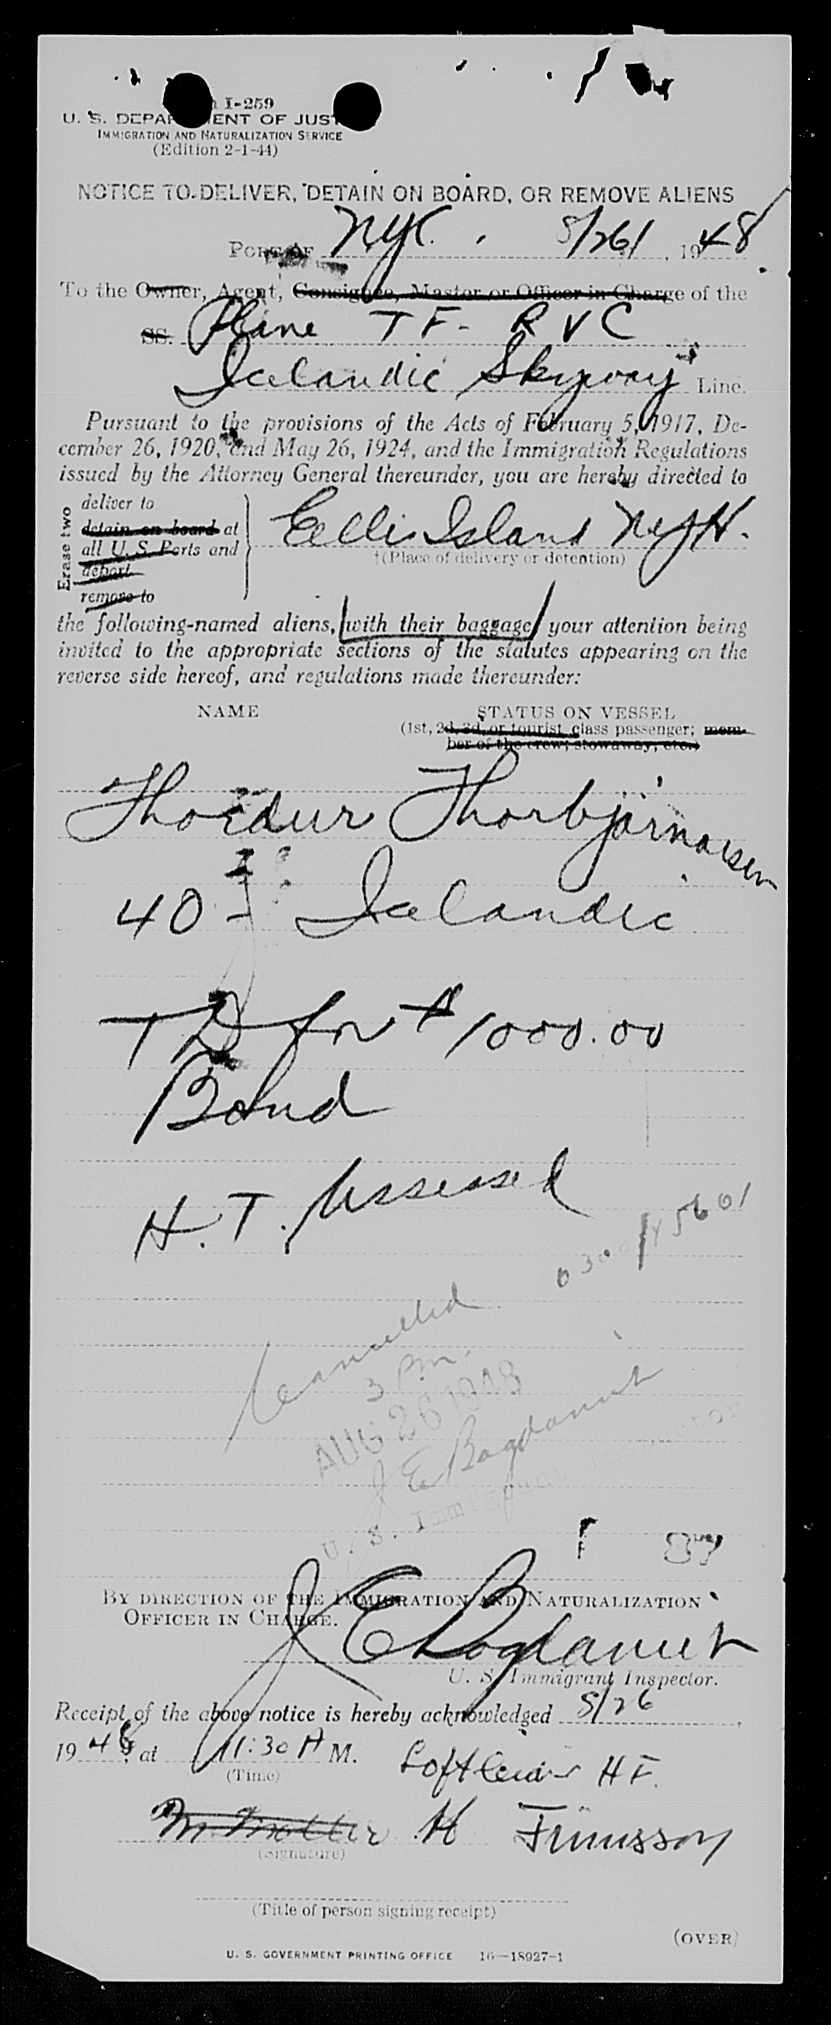 I-259
U. S. DEPARTMENT OF JUST
IMMIGRATION AND NATURALIZATION SERVICE
(Edition 2-1-44)
NOTICE TO DELIVER, DETAIN ON BOARD, OR REMOVE ALIENS
PORT OF NYC. 8/26/, 1948
To the Owner, Agent, Consignee, Master or Officer in Charge of the
SS. Plane TF-RVC
Icelandic Skyway Line.
Pursuant to the provisions of the Acts of February 5, 1917, De-
cember 26, 1920, and May 26, 1924, and the Immigration Regulations
issued by the Attorney General thereunder, you are hereby directed to
Erase two
deliver to
detain on board at
all U. S. Ports and
deport
remove to
Ellis Island NYH.
†(Place of delivery or detention)
the following-named aliens, with their baggage, your attention being
invited to the appropriate sections of the statutes appearing on the
reverse side hereof, and regulations made thereunder:
NAME STATUS ON VESSEL
(1st, 2d, 3d, or tourist class passenger; mem-
ber of the crew; stowaway, etc.)
Thordur Thorbjörnarsen
40 - Icelandic
TD for $1000.00
Bond
H.T. Assessed
0300/45601
Cancelled
3 PM.
AUG 26 1948
J E Bogdanult
U. S. Immigrant Inspector
BY DIRECTION OF THE IMMIGRATION AND NATURALIZATION
OFFICER IN CHARGE.
J E Bogdanult
U. S. Immigrant Inspector.
Receipt of the above notice is hereby acknowledged 8/26,
1948, at 11:30 A M. Loftleidir H F.
(Time)
H Finnsson
(Signature)
(Title of person signing receipt)
(OVER)
U. S. GOVERNMENT PRINTING OFFICE 16—18927-1